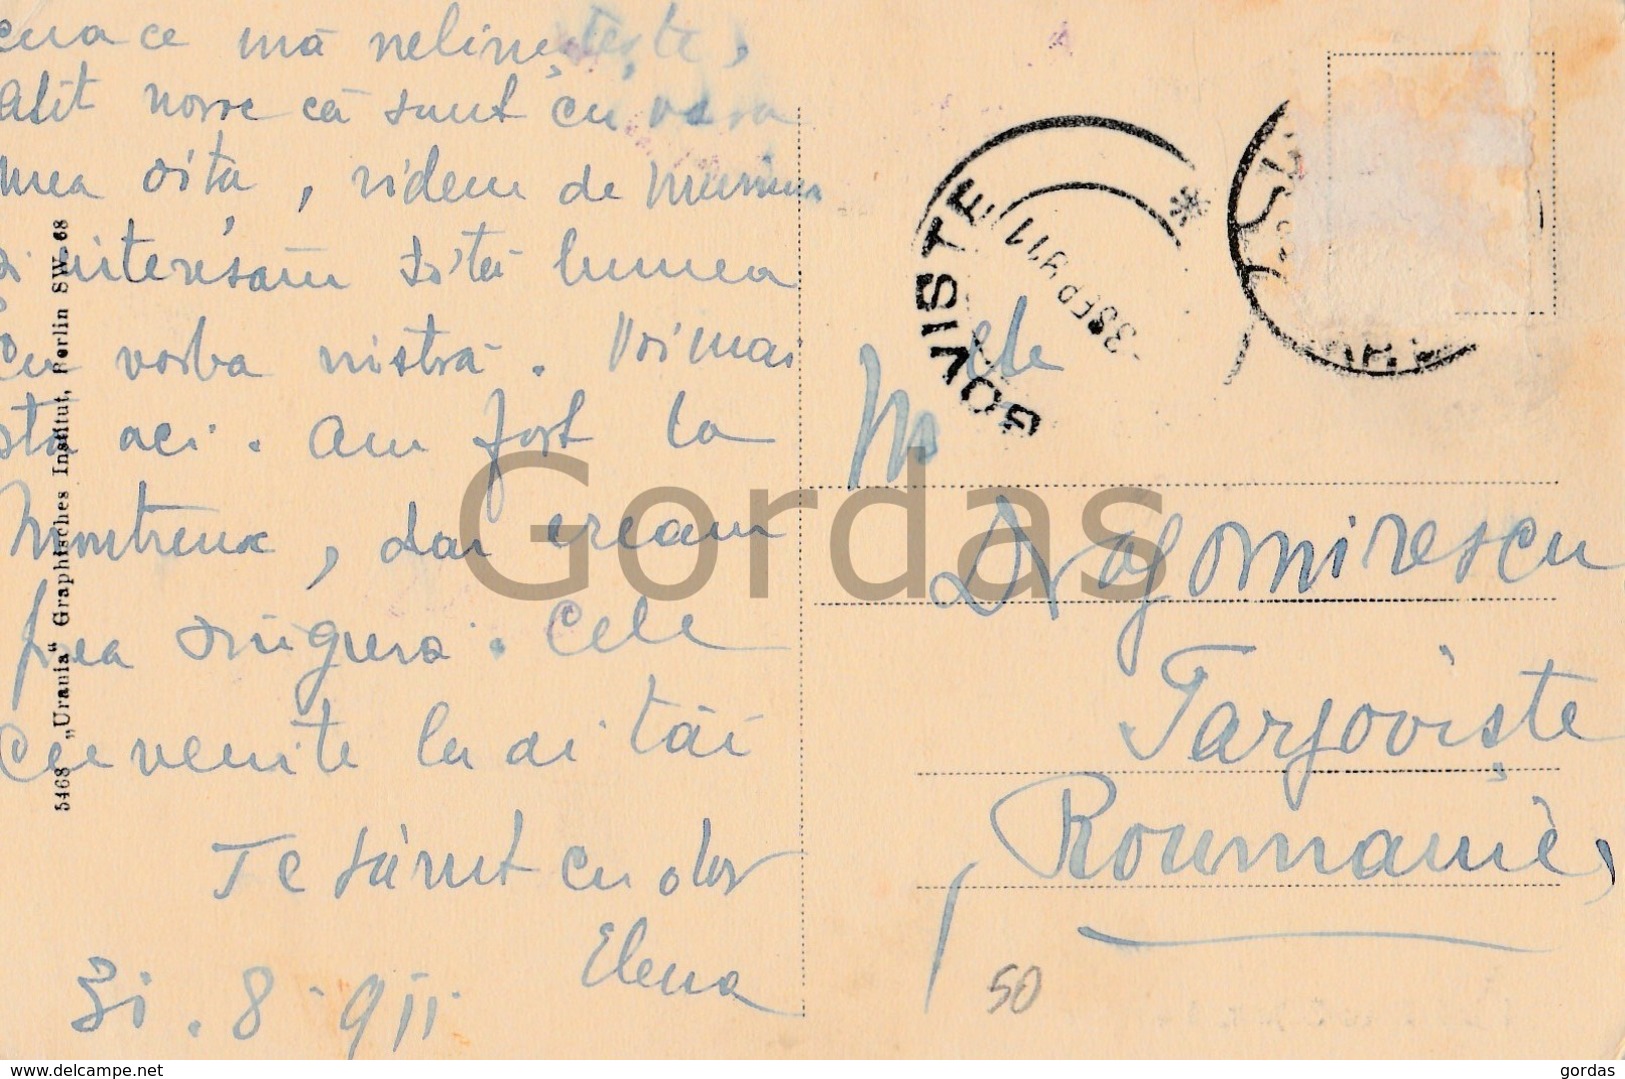 ce mă neliniștește,
Atît noroc că sunt cu vara
mea Oita, ridem de
și interesăm tótă lumea
cu vorba nóstră. Voi mai
sta aci. Am fost la
Montreux, dar eream
prea singura. Cele
cuvenite la ai tăi
Te sărut cu dor
Elena
31.8.911
5468 „Urania“ Graphisches Institut, Berlin SW. 68
GOVISTE
-3 SEP 911
Melle
Dragomirescu
Targoviște
Roumanie
50
Gordas
www.delcampe.net
gordas